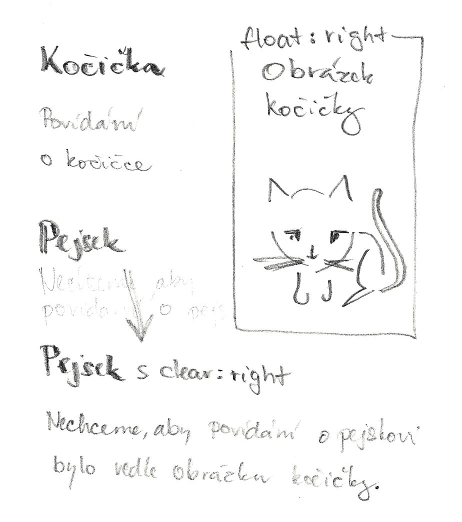 float: right
Kočička
Obrázek
kočičky
Povídání
o kočičce
Pejsek
aby
o
Pejsek s clear: right
Nechceme, aby povídání o pejskovi
bylo vedle obrázku kočičky.